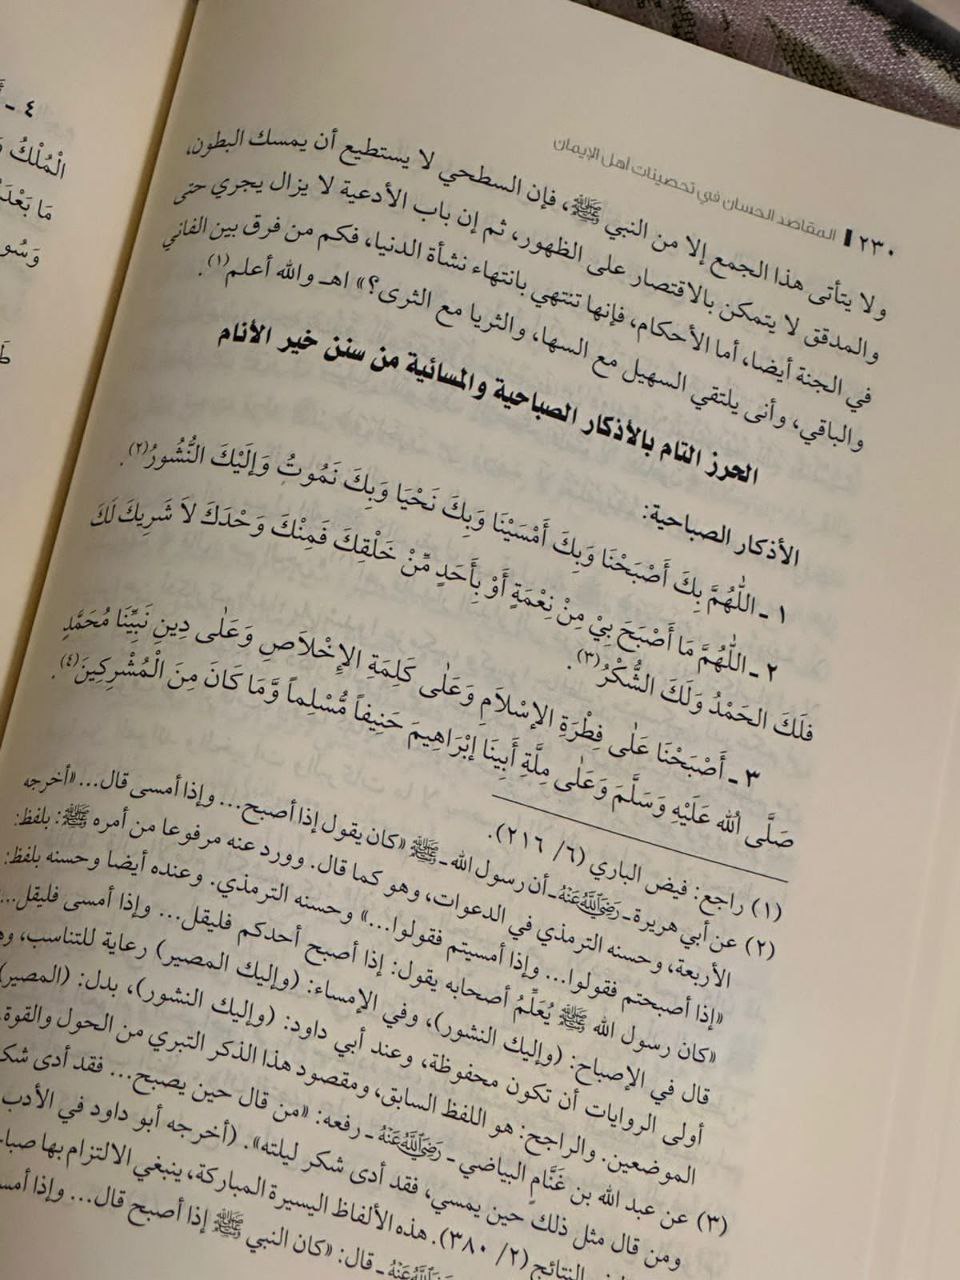 ٢٣٠ المقاصد الحسان في تحصينات أهل الإيمان
ولا يتأتى هذا الجمع إلا من النبي ﷺ، فإن السطحي لا يستطيع أن يمسك البطون،
والمدقق لا يتمكن بالاقتصار على الظهور، ثم إن باب الأدعية لا يزال يجري حتى
في الجنة أيضا، أما الأحكام، فإنها تنتهي بانتهاء نشأة الدنيا، فكم من فرق بين الفاني
والباقي، وأنى يلتقي السهيل مع السها، والثريا مع الثرى؟» اهـ والله أعلم(١).
الحرز التام بالأذكار الصباحية والمسائية من سنن خير الأنام
الأذكار الصباحية:
١ ـ اللّٰهُمَّ بِكَ أَصْبَحْنَا وَبِكَ أَمْسَيْنَا وَبِكَ نَحْيَا وَبِكَ نَمُوتُ وَإِلَيْكَ النُّشُورُ(٢).
٢ ـ اللّٰهُمَّ مَا أَصْبَحَ بِيْ مِنْ نِعْمَةٍ أَوْ بِأَحَدٍ مِّنْ خَلْقِكَ فَمِنْكَ وَحْدَكَ لاَ شَرِيكَ لَكَ
فلَكَ الحَمْدُ وَلَكَ الشُّكْرُ(٣).
٣ ـ أَصْبَحْنَا عَلٰى فِطْرَةِ الإِسْلاَمِ وَعَلٰى كَلِمَةِ الإِخْلاَصِ وَعَلٰى دِينِ نَبِيِّنَا مُحَمَّدٍ
صَلَّى اللهُ عَلَيْهِ وَسَلَّمَ وَعَلٰى مِلَّةِ أَبِينَا إِبْرَاهِيمَ حَنِيفاً مُّسْلِماً وَّمَا كَانَ مِنَ الْمُشْرِكِينَ(٤).
(١) راجع: فيض الباري (٦/ ٢١٦).
(٢) عن أبي هريرة ـ رَضِيَ اللَّهُ عَنْهُ ـ أن رسول الله ـ ﷺ «كان يقول إذا أصبح... وإذا أمسى قال... «أخرجه
الأربعة، وحسنه الترمذي في الدعوات، وهو كما قال. وورد عنه مرفوعا من أمره ﷺ: بلفظ:
«إذا أصبحتم فقولوا... وإذا أمسيتم فقولوا...» وحسنه الترمذي. وعنده أيضا وحسنه بلفظ:
«كان رسول الله ﷺ يُعَلِّمُ أصحابه يقول: إذا أصبح أحدكم فليقل... وإذا أمسى فليقل...
قال في الإصباح: (وإليك النشور)، وفي الإمساء: (وإليك المصير) رعاية للتناسب،
أولى الروايات أن تكون محفوظة، وعند أبي داود: (وإليك النشور)، بدل: (المصير)
الموضعين. والراجح: هو اللفظ السابق، ومقصود هذا الذكر التبري من الحول والقوة.
(٣) عن عبد الله بن غَنَّامٍ البياضي ـ رَضِيَ اللَّهُ عَنْهُ ـ رفعه: «من قال حين يصبح... فقد أدى شكر
ومن قال مثل ذلك حين يمسي، فقد أدى شكر ليلته». (أخرجه أبو داود في الأدب
النتائج (٢/ ٣٨٠). هذه الألفاظ اليسيرة المباركة، ينبغي الالتزام بها
رَضِيَ اللَّهُ عَنْهُ ـ قال: «كان النبي ﷺ إذا أصبح قال... وإذا
٤ ـ
الْمُلْكُ
مَا بَعْدَ